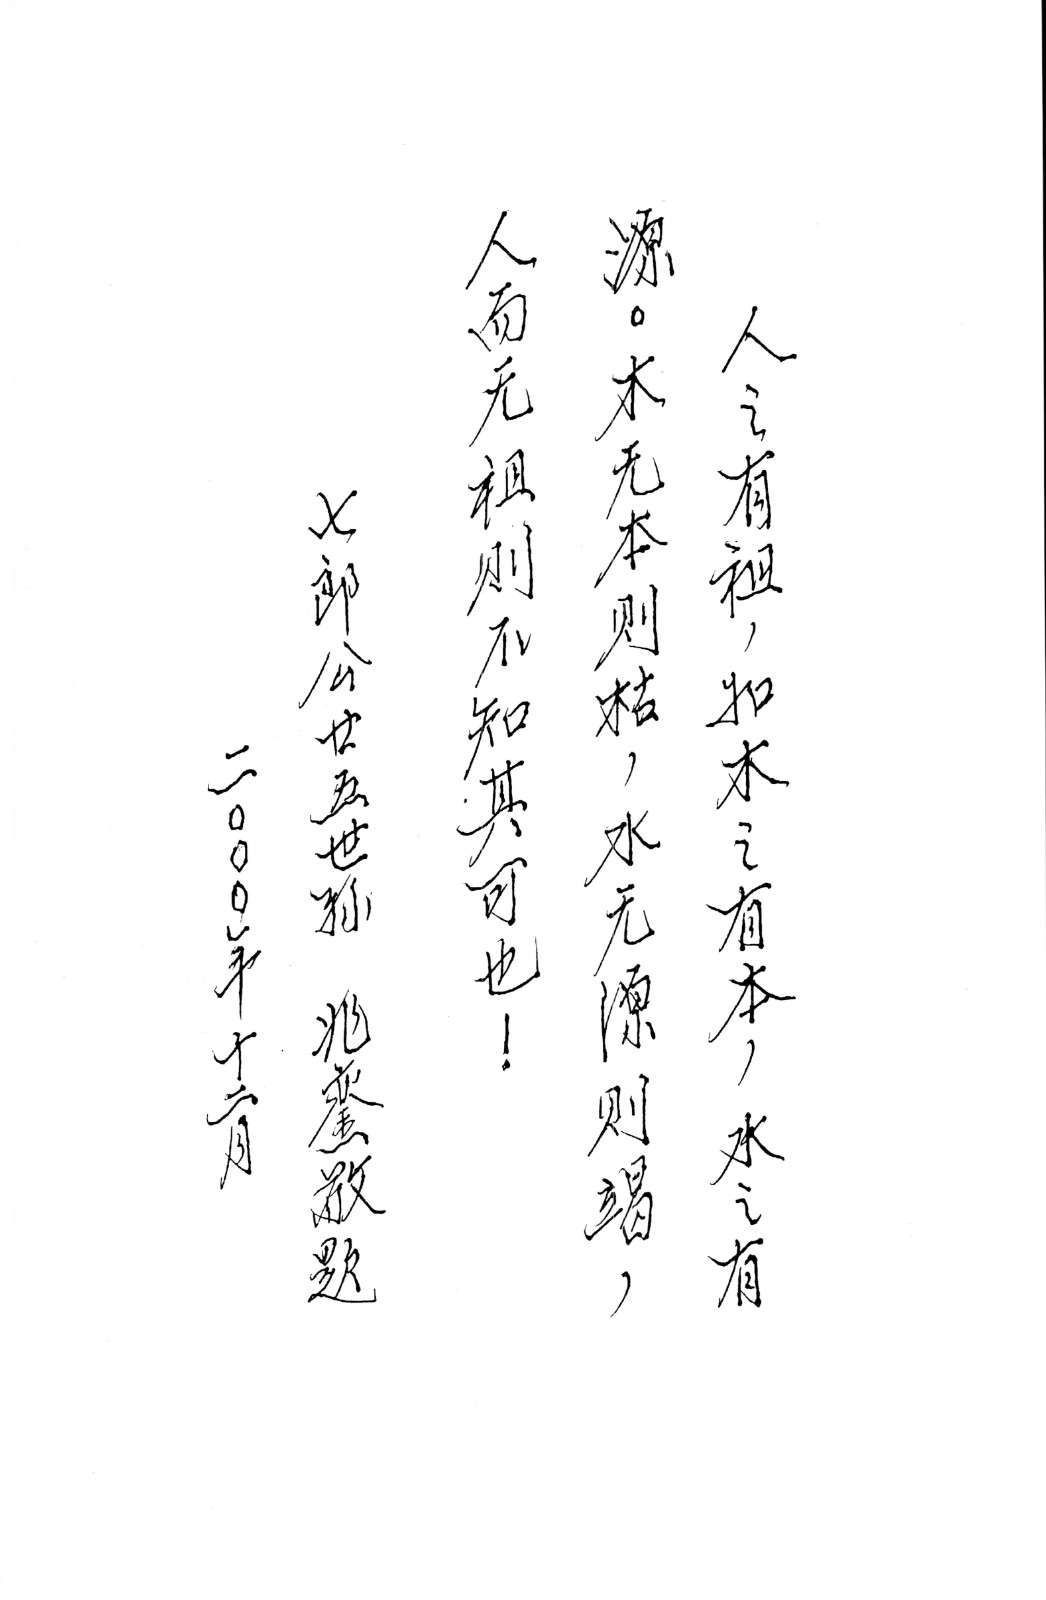 人之有祖，如木之有本，水之有
源。木无本则枯，水无源则竭，
人而无祖则不知其可也！
七郎公廿五世孙 兆鸾敬题
二000年十二月